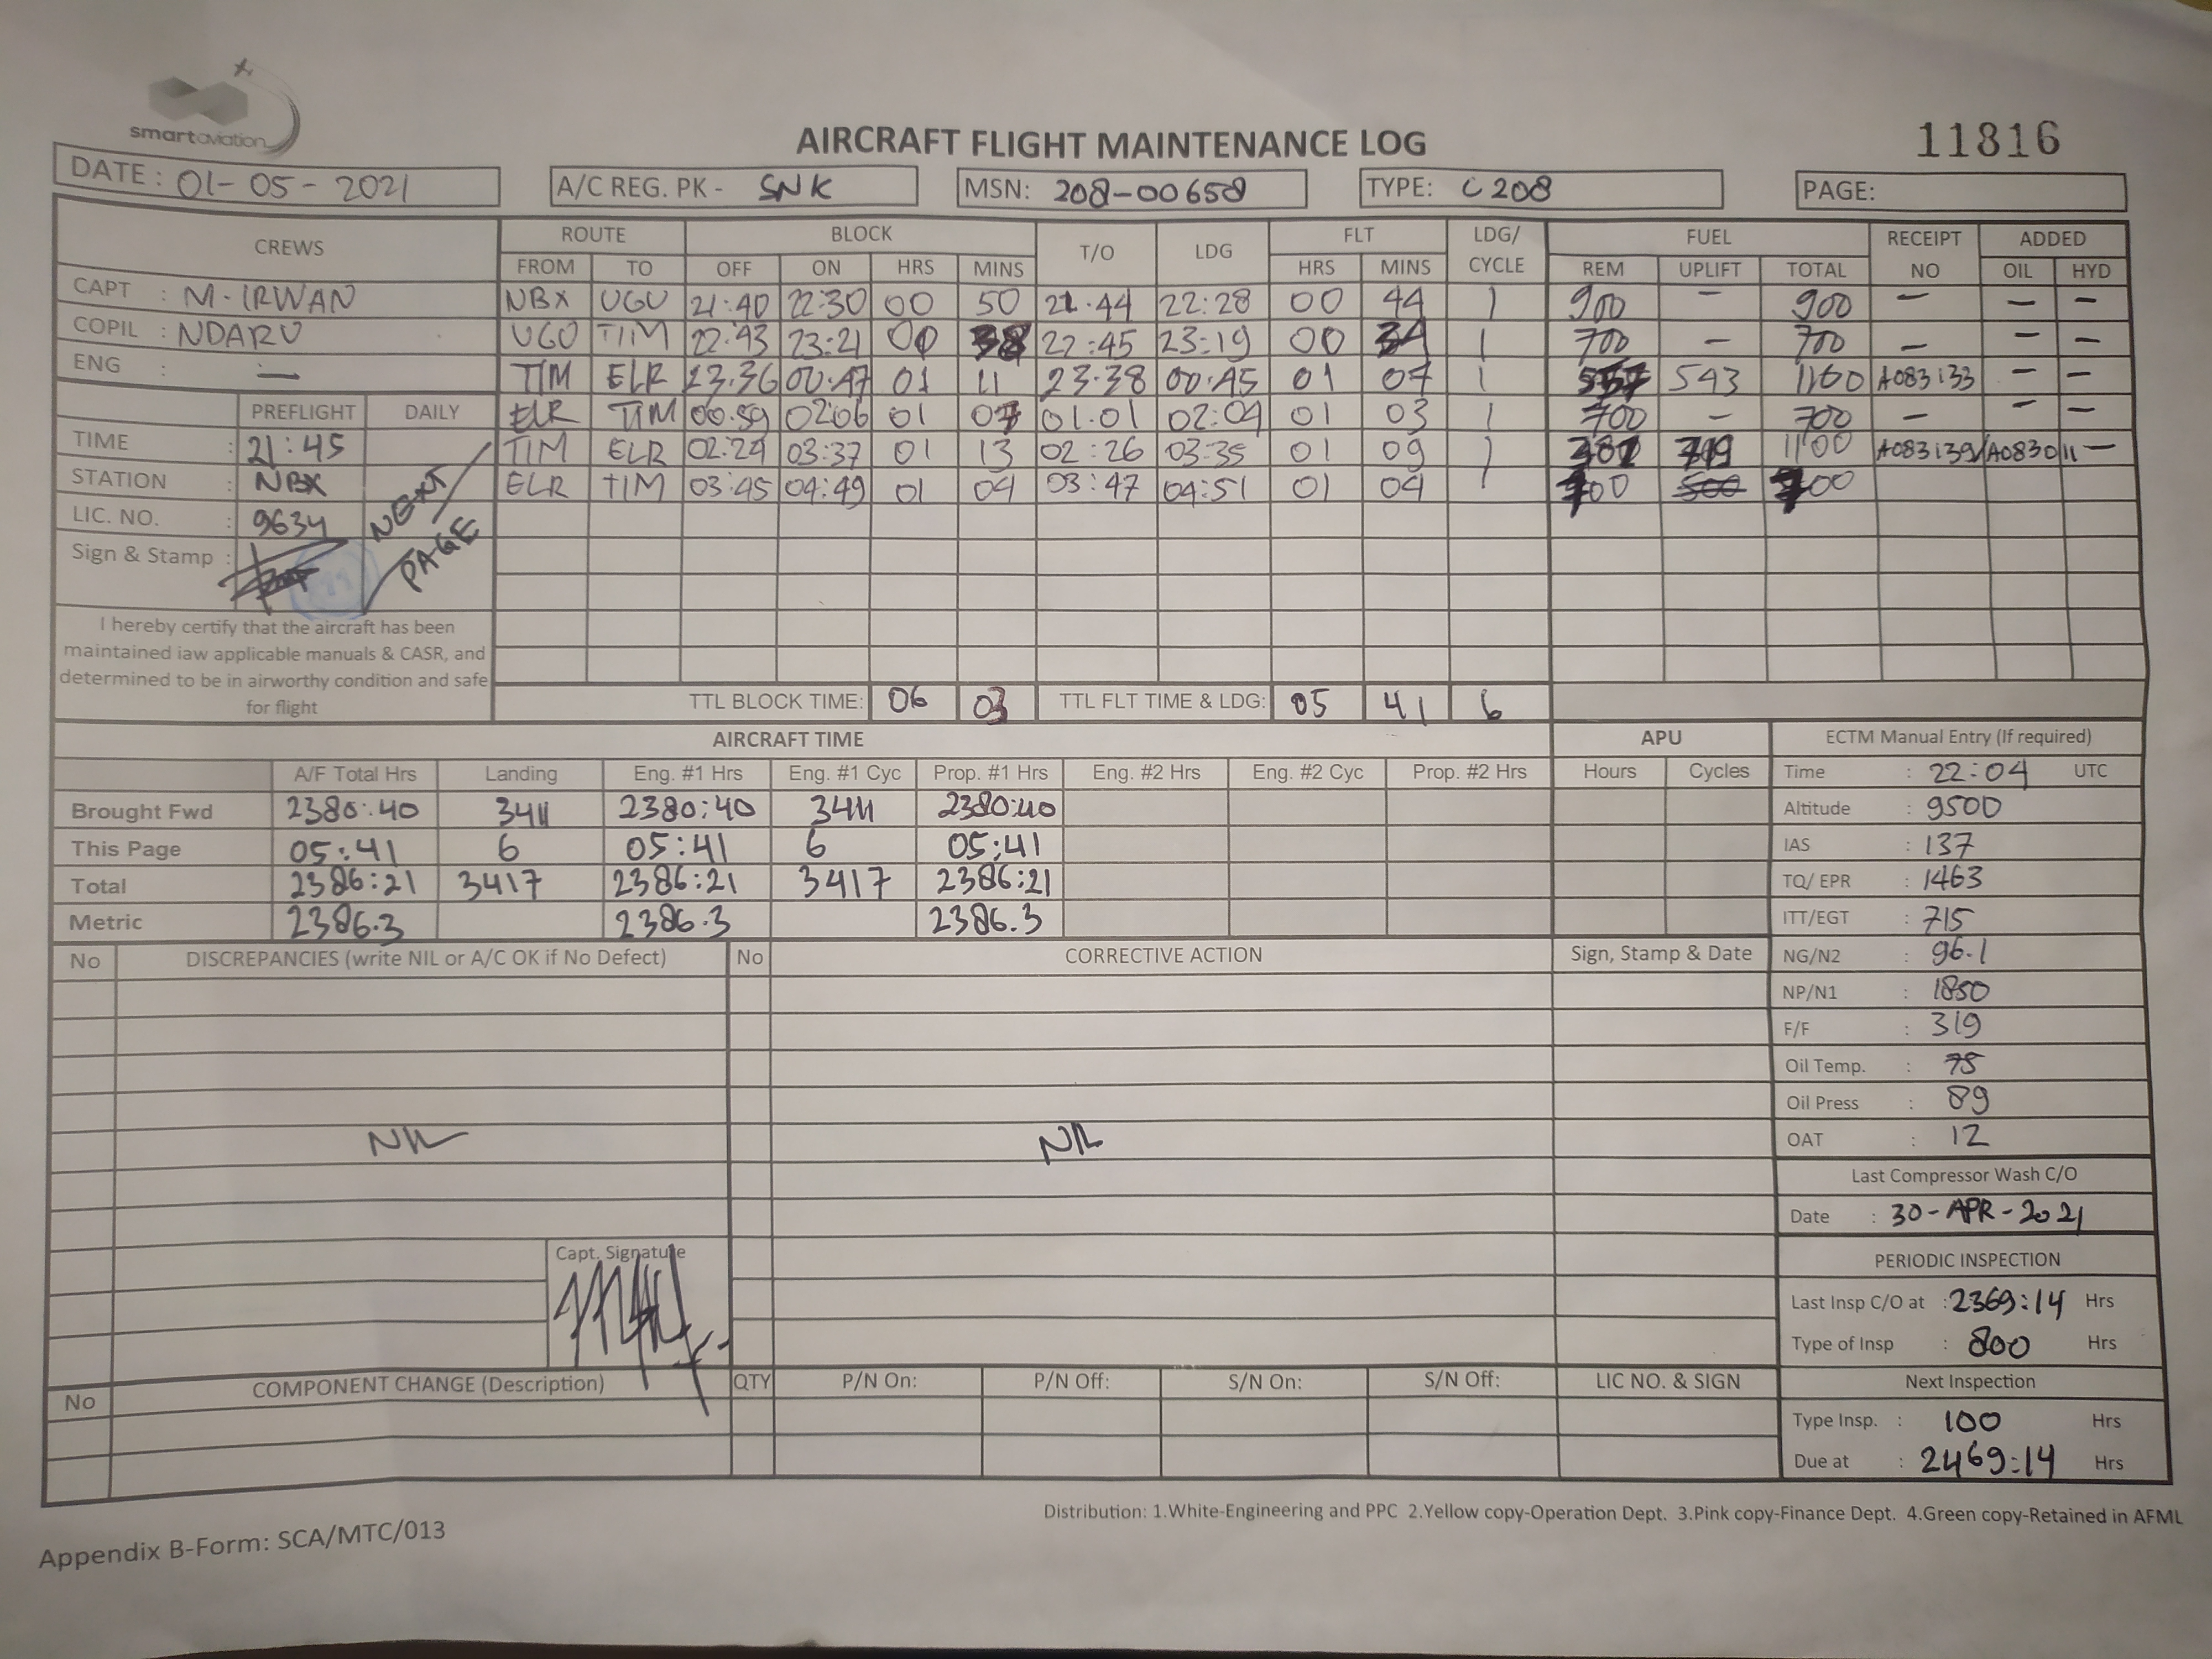 smartaviation
AIRCRAFT FLIGHT MAINTENANCE LOG
11816
DATE : 01-05-2021
A/C REG. PK - SNK
MSN: 208-00658
TYPE: C208
PAGE:
CREWS ROUTE BLOCK T/O LDG FLT LDG/ CYCLE FUEL RECEIPT NO ADDED
FROM TO OFF ON HRS MINS HRS MINS REM UPLIFT TOTAL OIL HYD
CAPT : M. IRWAN
COPIL : NDARU
ENG : —
NBX UGU 21:40 22:30 00 50 21:44 22:28 00 44 1 900 — 900 — — —
UGU TIM 22:43 23:21 00 38 22:45 23:19 00 34 1 700 — 700 — — —
TIM ELR 23:36 00:47 01 11 23:38 00:45 01 07 1 557 543 1100 A083133 — —
ELR TIM 00:59 02:06 01 07 01:01 02:04 01 03 1 700 — 700 — — —
TIM ELR 02:24 03:37 01 13 02:26 03:35 01 09 1 1100 A083139/A083011 —
ELR TIM 03:45 04:49 01 04 03:47 04:51 01 04 1 700 500 700
PREFLIGHT DAILY
TIME : 21:45
STATION : NBX
LIC. NO. : 9634
Sign & Stamp :
NEXT PAGE
I hereby certify that the aircraft has been
maintained iaw applicable manuals & CASR, and
determined to be in airworthy condition and safe
for flight
TTL BLOCK TIME: 06 03 TTL FLT TIME & LDG: 05 41 6
AIRCRAFT TIME APU
A/F Total Hrs Landing Eng. #1 Hrs Eng. #1 Cyc Prop. #1 Hrs Eng. #2 Hrs Eng. #2 Cyc Prop. #2 Hrs Hours Cycles
Brought Fwd 2380:40 3411 2380:40 3411 2380:40
This Page 05:41 6 05:41 6 05:41
Total 2386:21 3417 2386:21 3417 2386:21
Metric 2386.3 2386.3 2386.3
ECTM Manual Entry (If required)
Time : 22:04 UTC
Altitude : 9500
IAS : 137
TQ/ EPR : 1463
ITT/EGT : 715
NG/N2 : 96.1
NP/N1 : 1850
F/F : 319
Oil Temp. : 75
Oil Press : 89
OAT : 12
Last Compressor Wash C/O
Date : 30-APR-2021
PERIODIC INSPECTION
Last Insp C/O at : 2369:14 Hrs
Type of Insp : 800 Hrs
Next Inspection
Type Insp. : 100 Hrs
Due at : 2469:14 Hrs
No DISCREPANCIES (write NIL or A/C OK if No Defect) No CORRECTIVE ACTION Sign, Stamp & Date
NIL NIL
Capt. Signature
No COMPONENT CHANGE (Description) QTY P/N On: P/N Off: S/N On: S/N Off: LIC NO. & SIGN
Distribution: 1.White-Engineering and PPC 2.Yellow copy-Operation Dept. 3.Pink copy-Finance Dept. 4.Green copy-Retained in AFML
Appendix B-Form: SCA/MTC/013